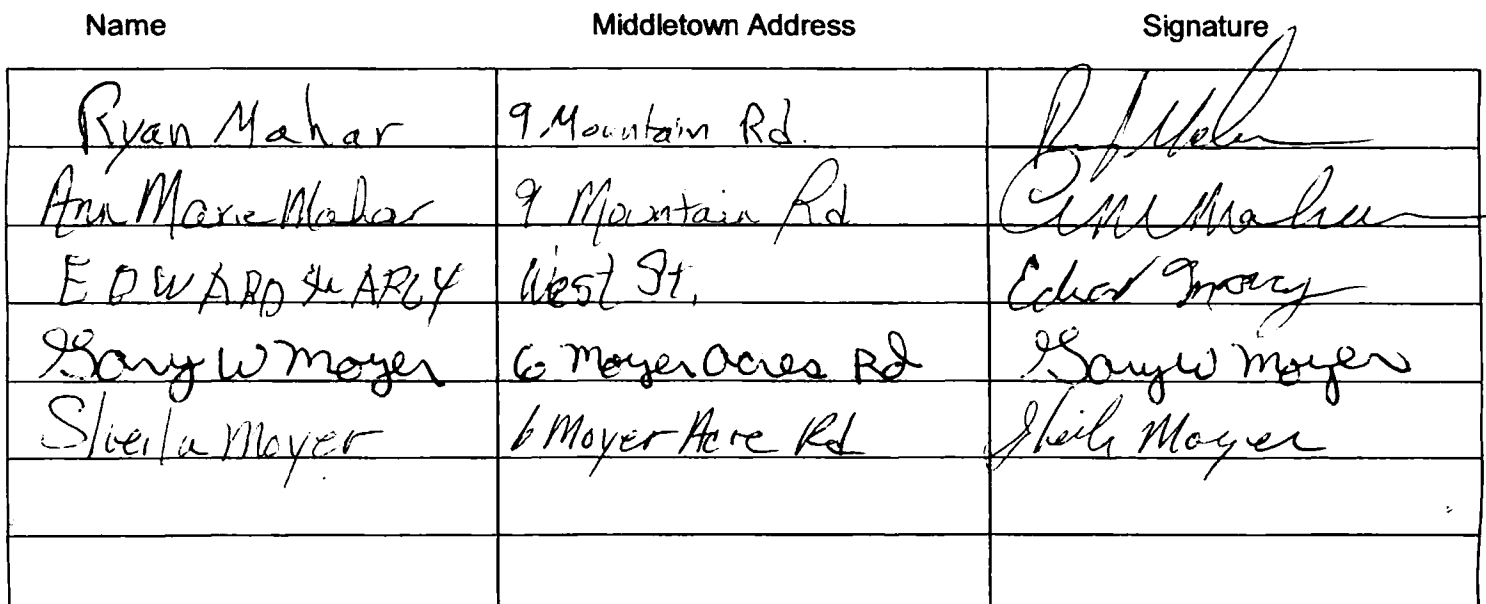 Name Middletown Address Signature
Ryan Mahar 9 Mountain Rd.
Ann Marie Mahar 9 Mountain Rd
EDWARD West St.
Gary W Moyer 6 Moyer Acres Rd Gary W Moyer
Sheila Moyer 6 Moyer Acre Rd Sheila Moyer